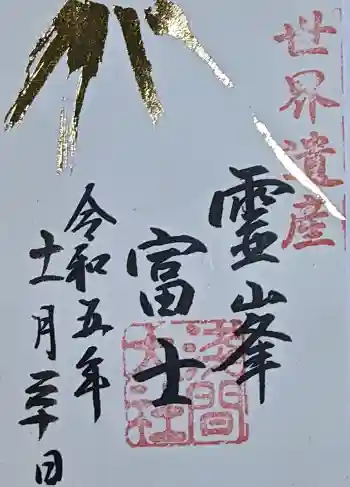 世界遺産
霊峰
富士
浅間大社
令和五年
十一月三十日